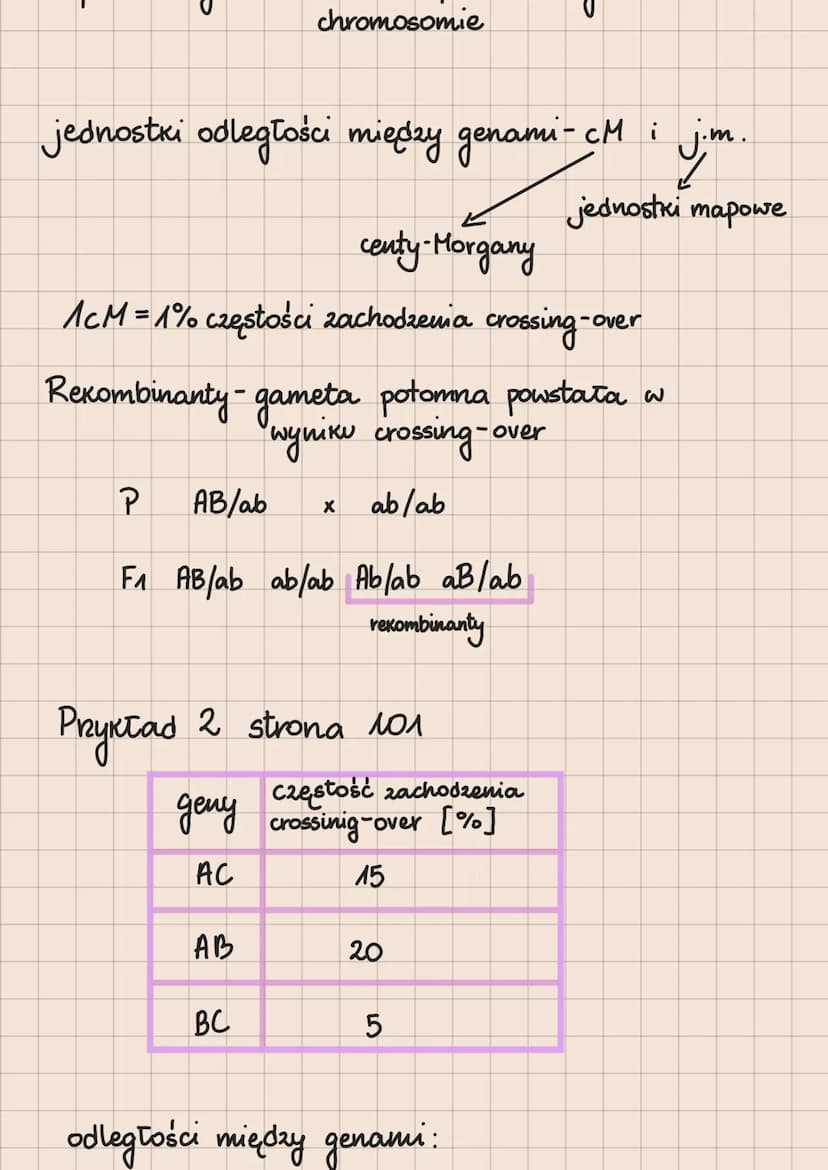 chromosomie
jednostki odległości między genami - cM i j.m.
jednostki mapowe
centy-Morgany
1cM = 1% częstości zachodzenia crossing-over
Rekombinanty - gameta potomna powstała w
wyniku crossing-over
P AB/ab x ab/ab
F1 AB/ab ab/ab Ab/ab aB/ab
rekombinanty
Przykład 2 strona 101
geny częstość zachodzenia
crossinig-over [%]
AC 15
AB 20
BC 5
odległości między genami: